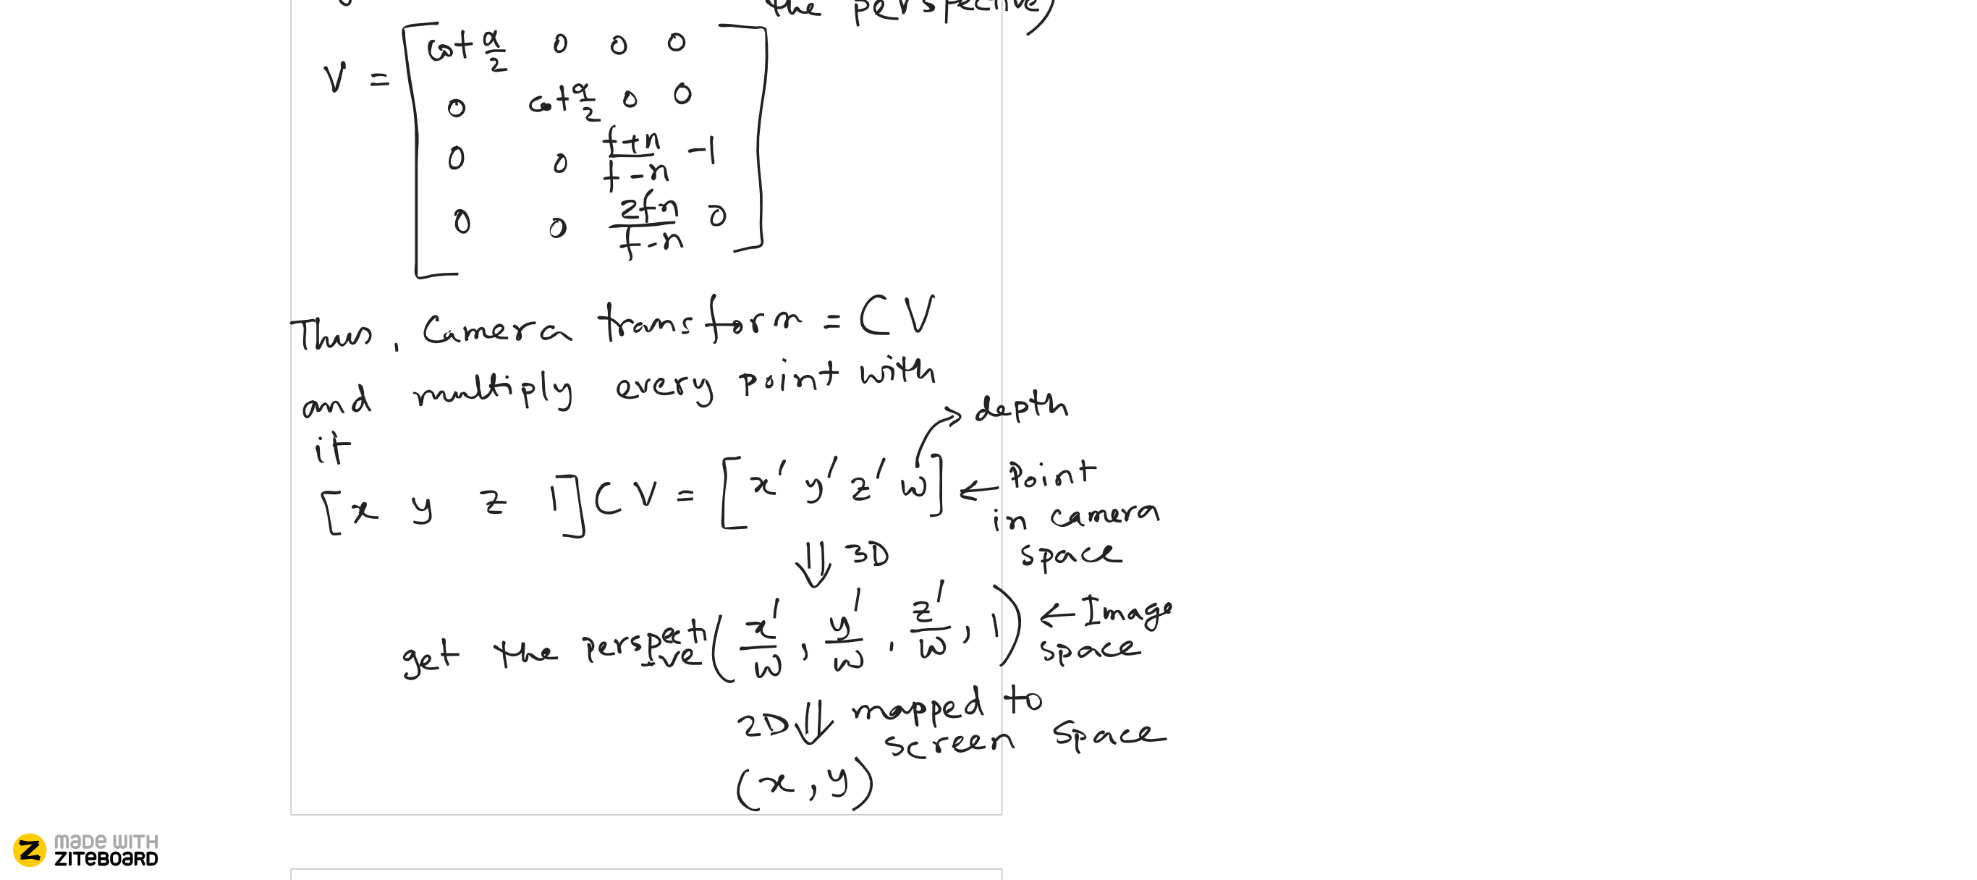 the perspective)
V = [ cot α/2 0 0 0
0 cot α/2 0 0
0 0 f+n/f-n -1
0 0 2fn/f-n 0 ]
Thus, Camera transform = CV
and multiply every point with
it
→ depth
[x y z 1] C V = [x' y' z' w] ← Point
in camera
space
⇓ 3D
get the perspective (x'/w, y'/w, z'/w, 1) ← Image
space
2D ⇓ mapped to
screen space
(x, y)
MADE WITH
ZITEBOARD